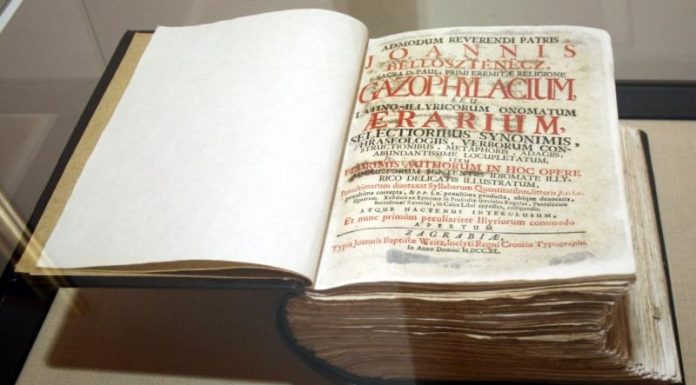 ADMODUM REVERENDI PATRIS
JOANNIS
BELLOSZTENECZ,
E SACRA D. PAULI PRIMI EREMITÆ RELIGIONE
GAZOPHYLACIUM,
SEU
LATINO-ILLYRICORUM ONOMATUM
ÆRARIUM,
SELECTIORIBUS SYNONIMIS,
PHRASEOLOGIIS, VERBORUM CON-
STRUCTIONIBUS, METAPHORIS, ADAGIIS,
ABUNDANTISSIME LOCUPLETATUM,
ITEM
PLURIMIS AUTHORUM IN HOC OPERE
ADDUCTORUM SENTENTIIS IDIOMATE ILLY-
RICO DELICATIS ILLUSTRATUM,
Penultimarum duntaxat Syllabarum Quantitatibus, litteris p. c. i. e.
penultima correpta, & p. p. i. e. penultima producta, ubique denotatis,
ATQUE HACTENUS INTERCLUSUM,
Et nunc primùm peculiariter Illyriorum commodo
APERTUM
ZAGRABIÆ,
Typis Joannis Baptistæ Weitz, Inclyti Regni Croatiæ Typographi,
In Anno Domini M.DCC.XL.